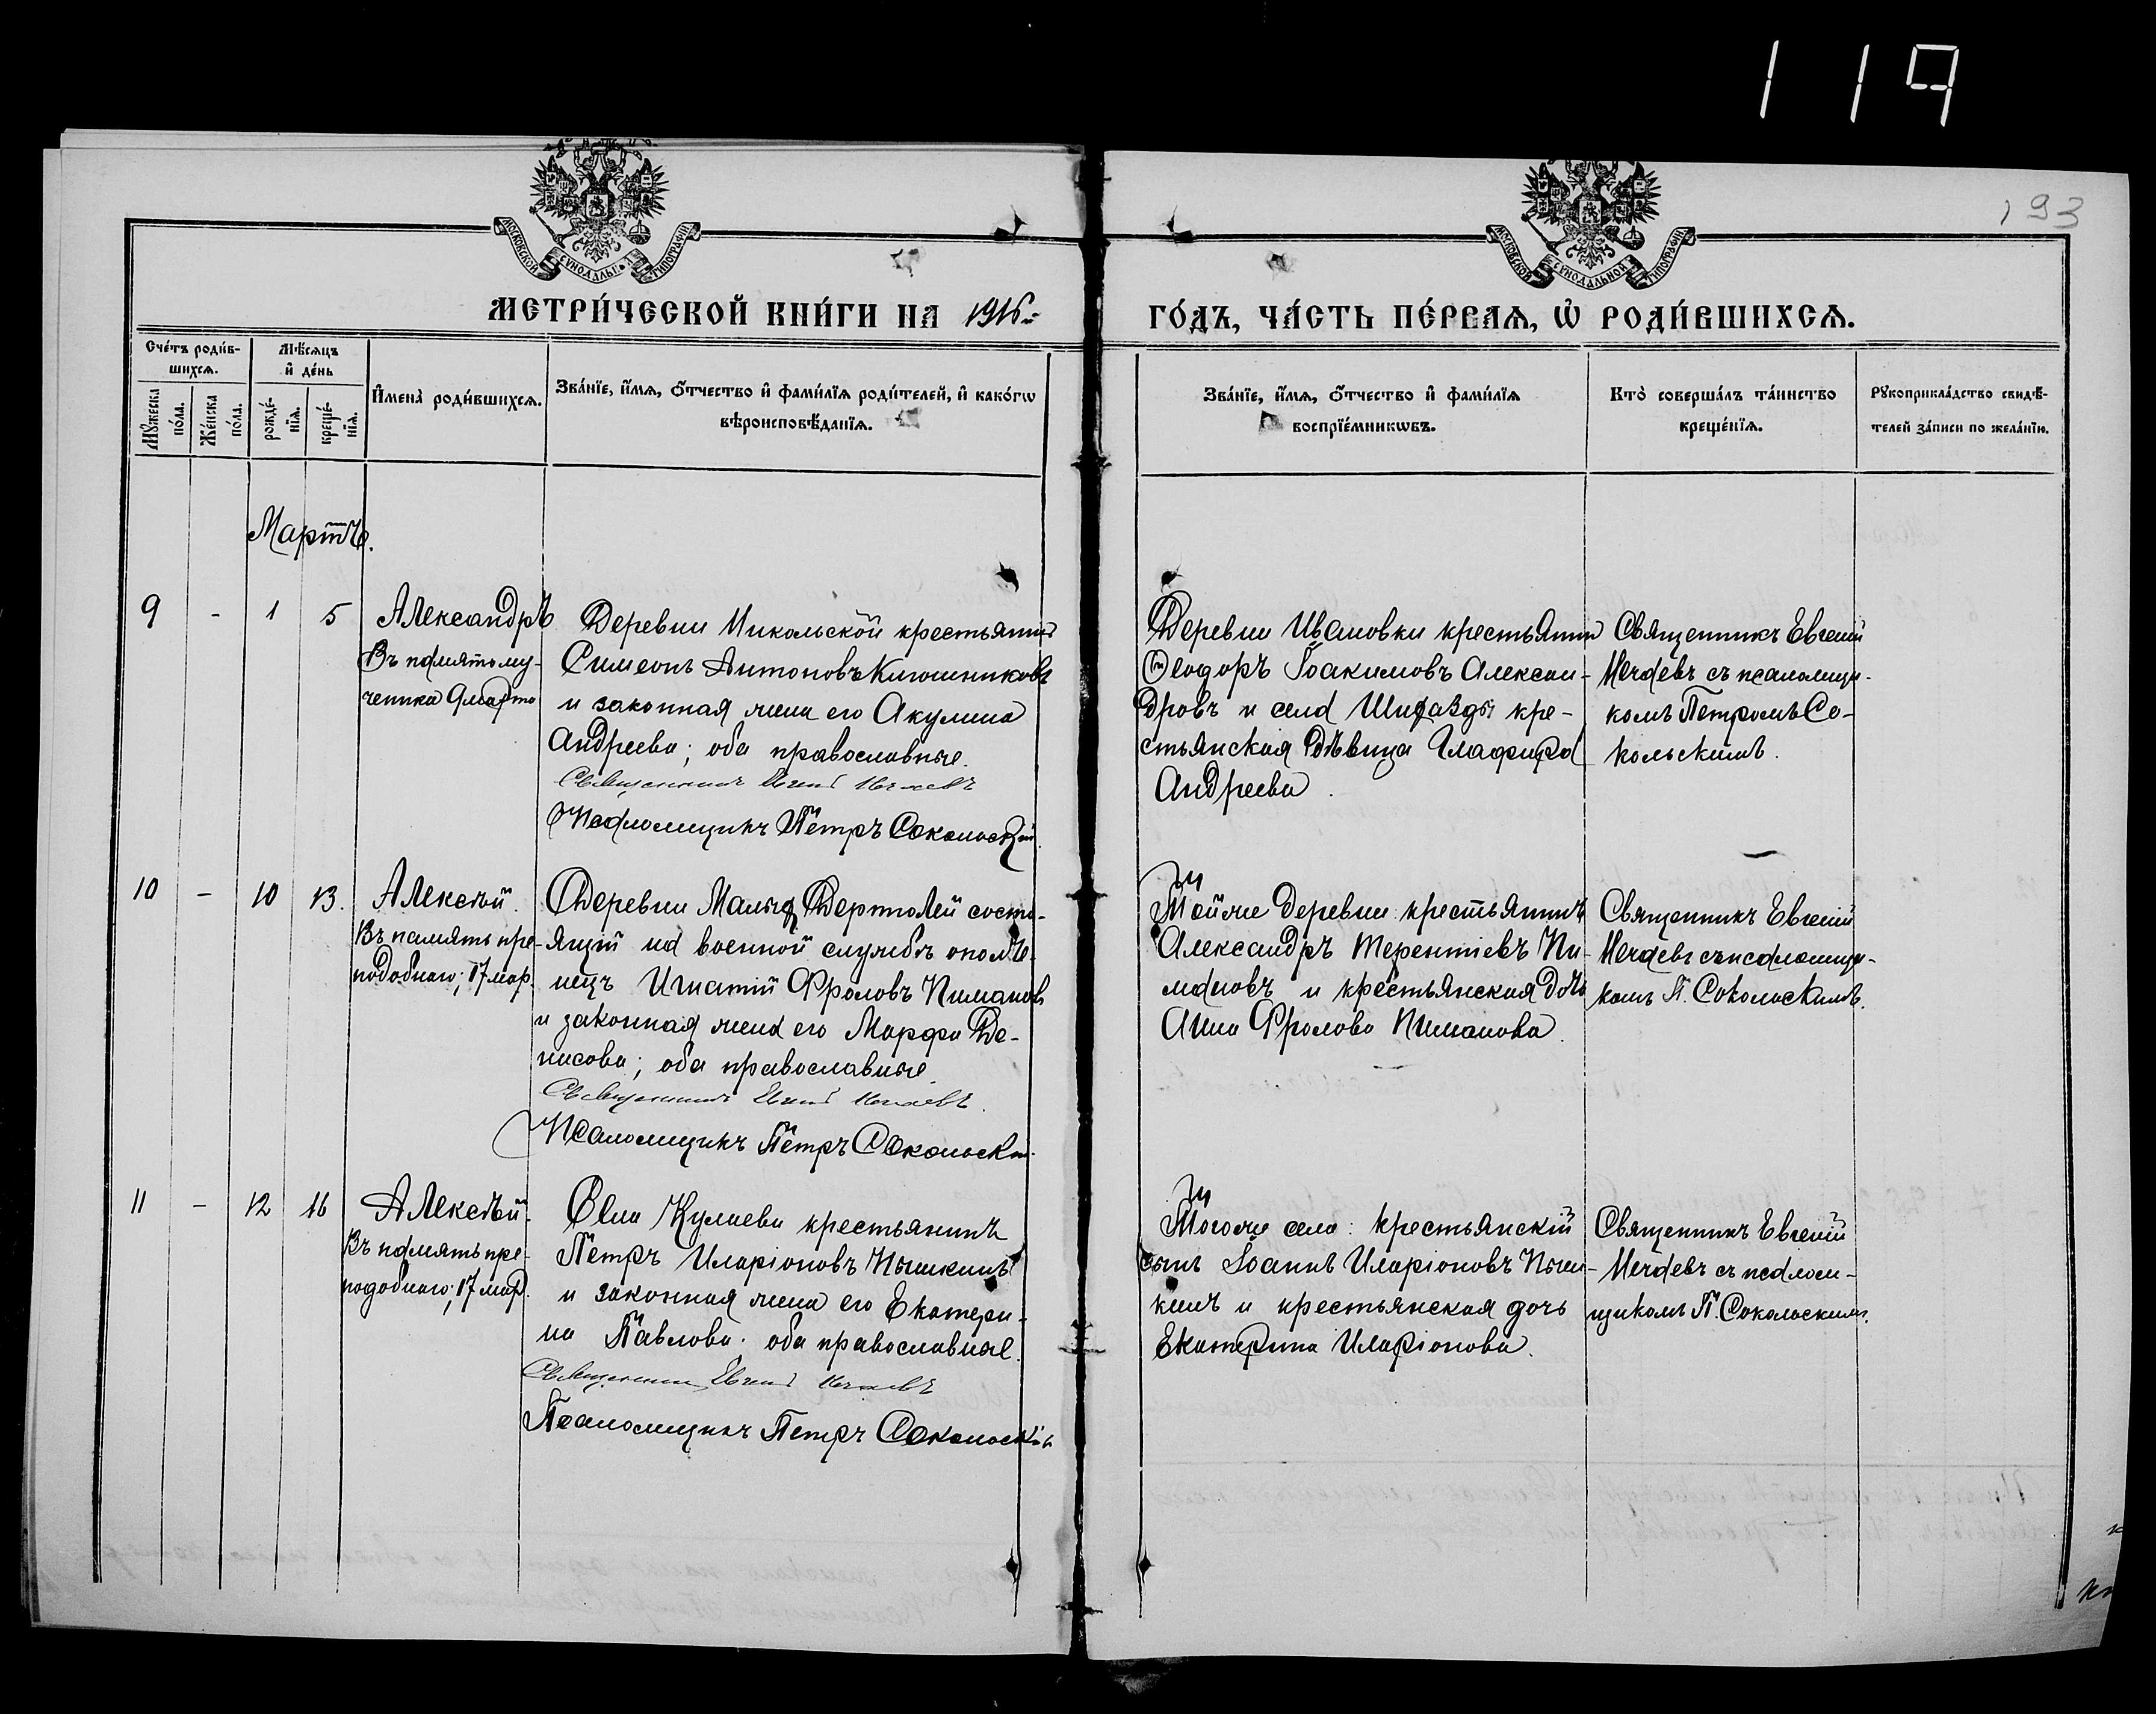 119
193
МОСКОВСКОЙ СѴНОДАЛЬНОЙ ТИПОГРАФІИ
МОСКОВСКОЙ СѴНОДАЛЬНОЙ ТИПОГРАФІИ
МЕТРИ́ЧЕСКОЙ КНИ́ГИ НА 1916й
ГО́ДЪ, ЧА́СТЬ ПЕ́РВАѦ, Ѡ҆ РОДИ́ВШИХСѦ.
Сче́тъ роди́в-
шихсѧ.
Мꙋжеска
по́ла.
Же́нска
по́ла.
Мѣ́сѧцъ
и҆ де́нь
рожде́-
нїѧ.
креще́-
нїѧ.
И҆мена̀ роди́вшихсѧ.
Зва́нїе, и҆́мѧ, ѻ҆́тчество и҆ фами́лїѧ роди́телей, и҆ како́гѡ
вѣроисповѣ́данїѧ.
Зва́нїе, и҆́мѧ, ѻ҆́тчество и҆ фами́лїѧ
воспрїе́мникѡвъ.
Кто̀ соверша́лъ та́инство
креще́нїѧ.
Рꙋкоприкла́дство свидѣ́-
телей за́писи по жела́нїю.
Мартъ.
9 - 1 5
Александръ
Въ память му-
ченика 9 марта
Деревни Никольской крестьянинъ
Симеонъ Антоновъ Ключниковъ
и законная жена его Акулина
Андреева; оба православные.
Священникъ Евгеній Нечаевъ
Псаломщикъ Петръ Сокольскій
Деревни Ивановки крестьянинъ
Ѳеодоръ Іоакимовъ Алексан-
дровъ и села крe-
стьянская дѣвица Глафира
Андреева.
Священникъ Евгеній
Нечаевъ съ псаломщи-
комъ Петромъ Со-
кольскимъ.
10 - 10 13.
Алексѣй.
Въ память пре-
подобнаго; 17 мар.
Деревни Малыя Дертолей состо-
ящій на военной службѣ ополче-
нецъ Игнатій Фроловъ Пимановъ
и законная жена его Марфа Де-
нисова; оба православные.
Священникъ Евгеній Нечаевъ.
Псаломщикъ Петръ Сокольскій.
Той же деревни: крестьянинъ
Александръ Терентіевъ Пи-
мановъ и крестьянская дочь
Анна Фролова Пиманова.
Священникъ Евгеній
Нечаевъ съ псаломщи-
комъ П. Сокольскимъ.
11 - 12 16
Алексѣй.
Въ память пре-
подобнаго; 17 мар.
Села Кулаева крестьянинъ
Петръ Иларіоновъ Пышкинъ
и законная жена его Екатери-
на Павлова; оба православные.
Священникъ Евгеній Нечаевъ
Псаломщикъ Петръ Сокольскій
Того же села: крестьянскій
сынъ Іоаннъ Иларіоновъ Пыш-
кинъ и крестьянская дочь
Екатерина Иларіонова.
Священникъ Евгеній
Нечаевъ съ псалом-
щикомъ П. Сокольскимъ.